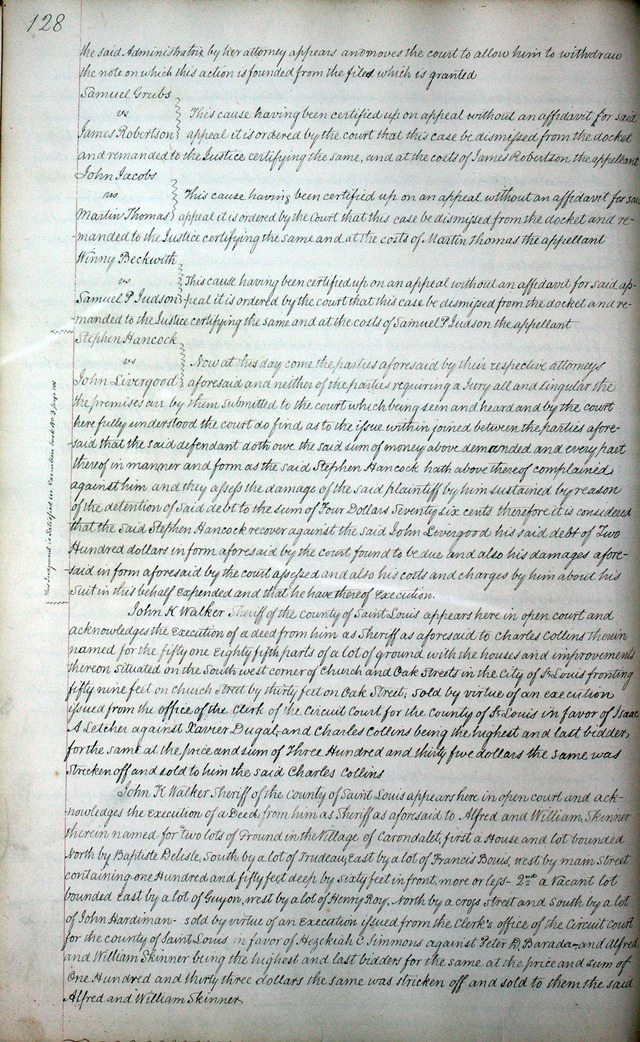 128
the said Administratrix by her attorney appears and moves the court to allow him to withdraw
the note on which this action is founded from the files which is granted
Samuel Grubs
vs This cause having been certified up on appeal without an affidavit for said
James Robertson appeal it is ordered by the court that this case be dismissed from the docket
and remanded to the Justice certifying the same, and at the costs of James Robertson the appellant
John Jacobs
vs This cause having been certified up on an appeal without an affidavit for said
Martin Thomas appeal it is ordered by the Court that this case be dismissed from the docket and re-
-manded to the Justice certifying the same and at the costs of Martin Thomas the appellant
Winny Beckwith
vs This cause having been certified up on an appeal without an affidavit for said ap-
Samuel P Judson -peal it is ordered by the court that this case be dismissed from the docket and re-
-manded to the Justice certifying the same and at the costs of Samuel P Judson the appellant
Stephen Hancock
vs Now at this day come the parties aforesaid by their respective attorneys
John Livergood aforesaid and neither of the parties requiring a Jury all and singular the
the premises are by them submitted to the court which being seen and heard and by the court
here fully understood the court do find as to the issue within joined between the parties afore-
-said that the said defendant doth owe the said sum of money above demanded and every part
thereof in manner and form as the said Stephen Hancock hath above thereof complained
against him and they assess the damage of the said plaintiff by him sustained by reason
of the detention of said debt to the sum of Four Dollars Seventy six cents therefore it is considered
that the said Stephen Hancock recover against the said John Levergood his said debt of Two
Hundred dollars in form aforesaid by the court found to be due and also his damages afore-
-said in form aforesaid by the court assessed and also his costs and charges by him about his
Suit in this behalf Expended and that he have thereof Execution.
This Judgment is Satisfied see Execution book No 3 page
John K Walker Sheriff of the county of Saint Louis appears here in open court and
acknowledges the Execution of a deed from him as Sheriff as aforesaid to Charles Collins therein
named for the fifty one Eighty fifth parts of a lot of ground with the houses and improvements
thereon situated on the South west corner of Church and Oak Streets in the City of St Louis fronting
fifty nine feet on church Street by thirty feet on Oak Street, sold by virtue of an execution
issued from the office of the Clerk of the Circuit Court for the County of St Louis in favor of Isaac
A Letcher against Xavier Dugal and Charles Collins being the highest and last bidder
for the same at the price and sum of Three Hundred and thirty five dollars the same was
Stricken off and sold to him the said Charles Collins
John K Walker Sheriff of the county of Saint Louis appears here in open court and ack-
-nowledges the Execution of a Deed, from him as Sheriff as aforesaid to Alfred and William Skinner
therein named for two lots of Ground in the Village of Carondalet, first a House and lot bounded
North by Baptiste Delisle, South by a lot of Trudeau, East by a lot of Francis Bouis, west by main Street
containing one Hundred and fifty feet deep by sixty feet in front, more or less- 2nd a Vacant lot
bounded east by a lot of Guyon, west by a lot of Henry Roy, North by a cross Street and South by a lot
of John Hardiman- sold by virtue of an Execution issued from the Clerk's office of the Circuit Court
for the county of Saint Louis in favor of Hezekiah C Simmons against Peter D. Barada- and Alfred
and William Skinner being the highest and last bidders for the same at the price and sum of
One Hundred and thirty three dollars the same was stricken off and sold to them the said
Alfred and William Skinner